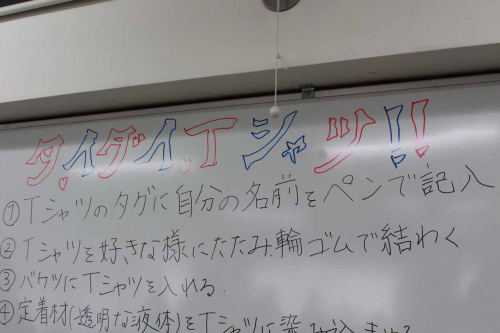 タイダイTシャツ!!
①Tシャツのタグに自分の名前をペンで記入
②Tシャツを好きな様にたたみ、輪ゴムで結わく
③バケツにTシャツを入れる.
④定着材(透明な液体)をTシャツに染み込ませる